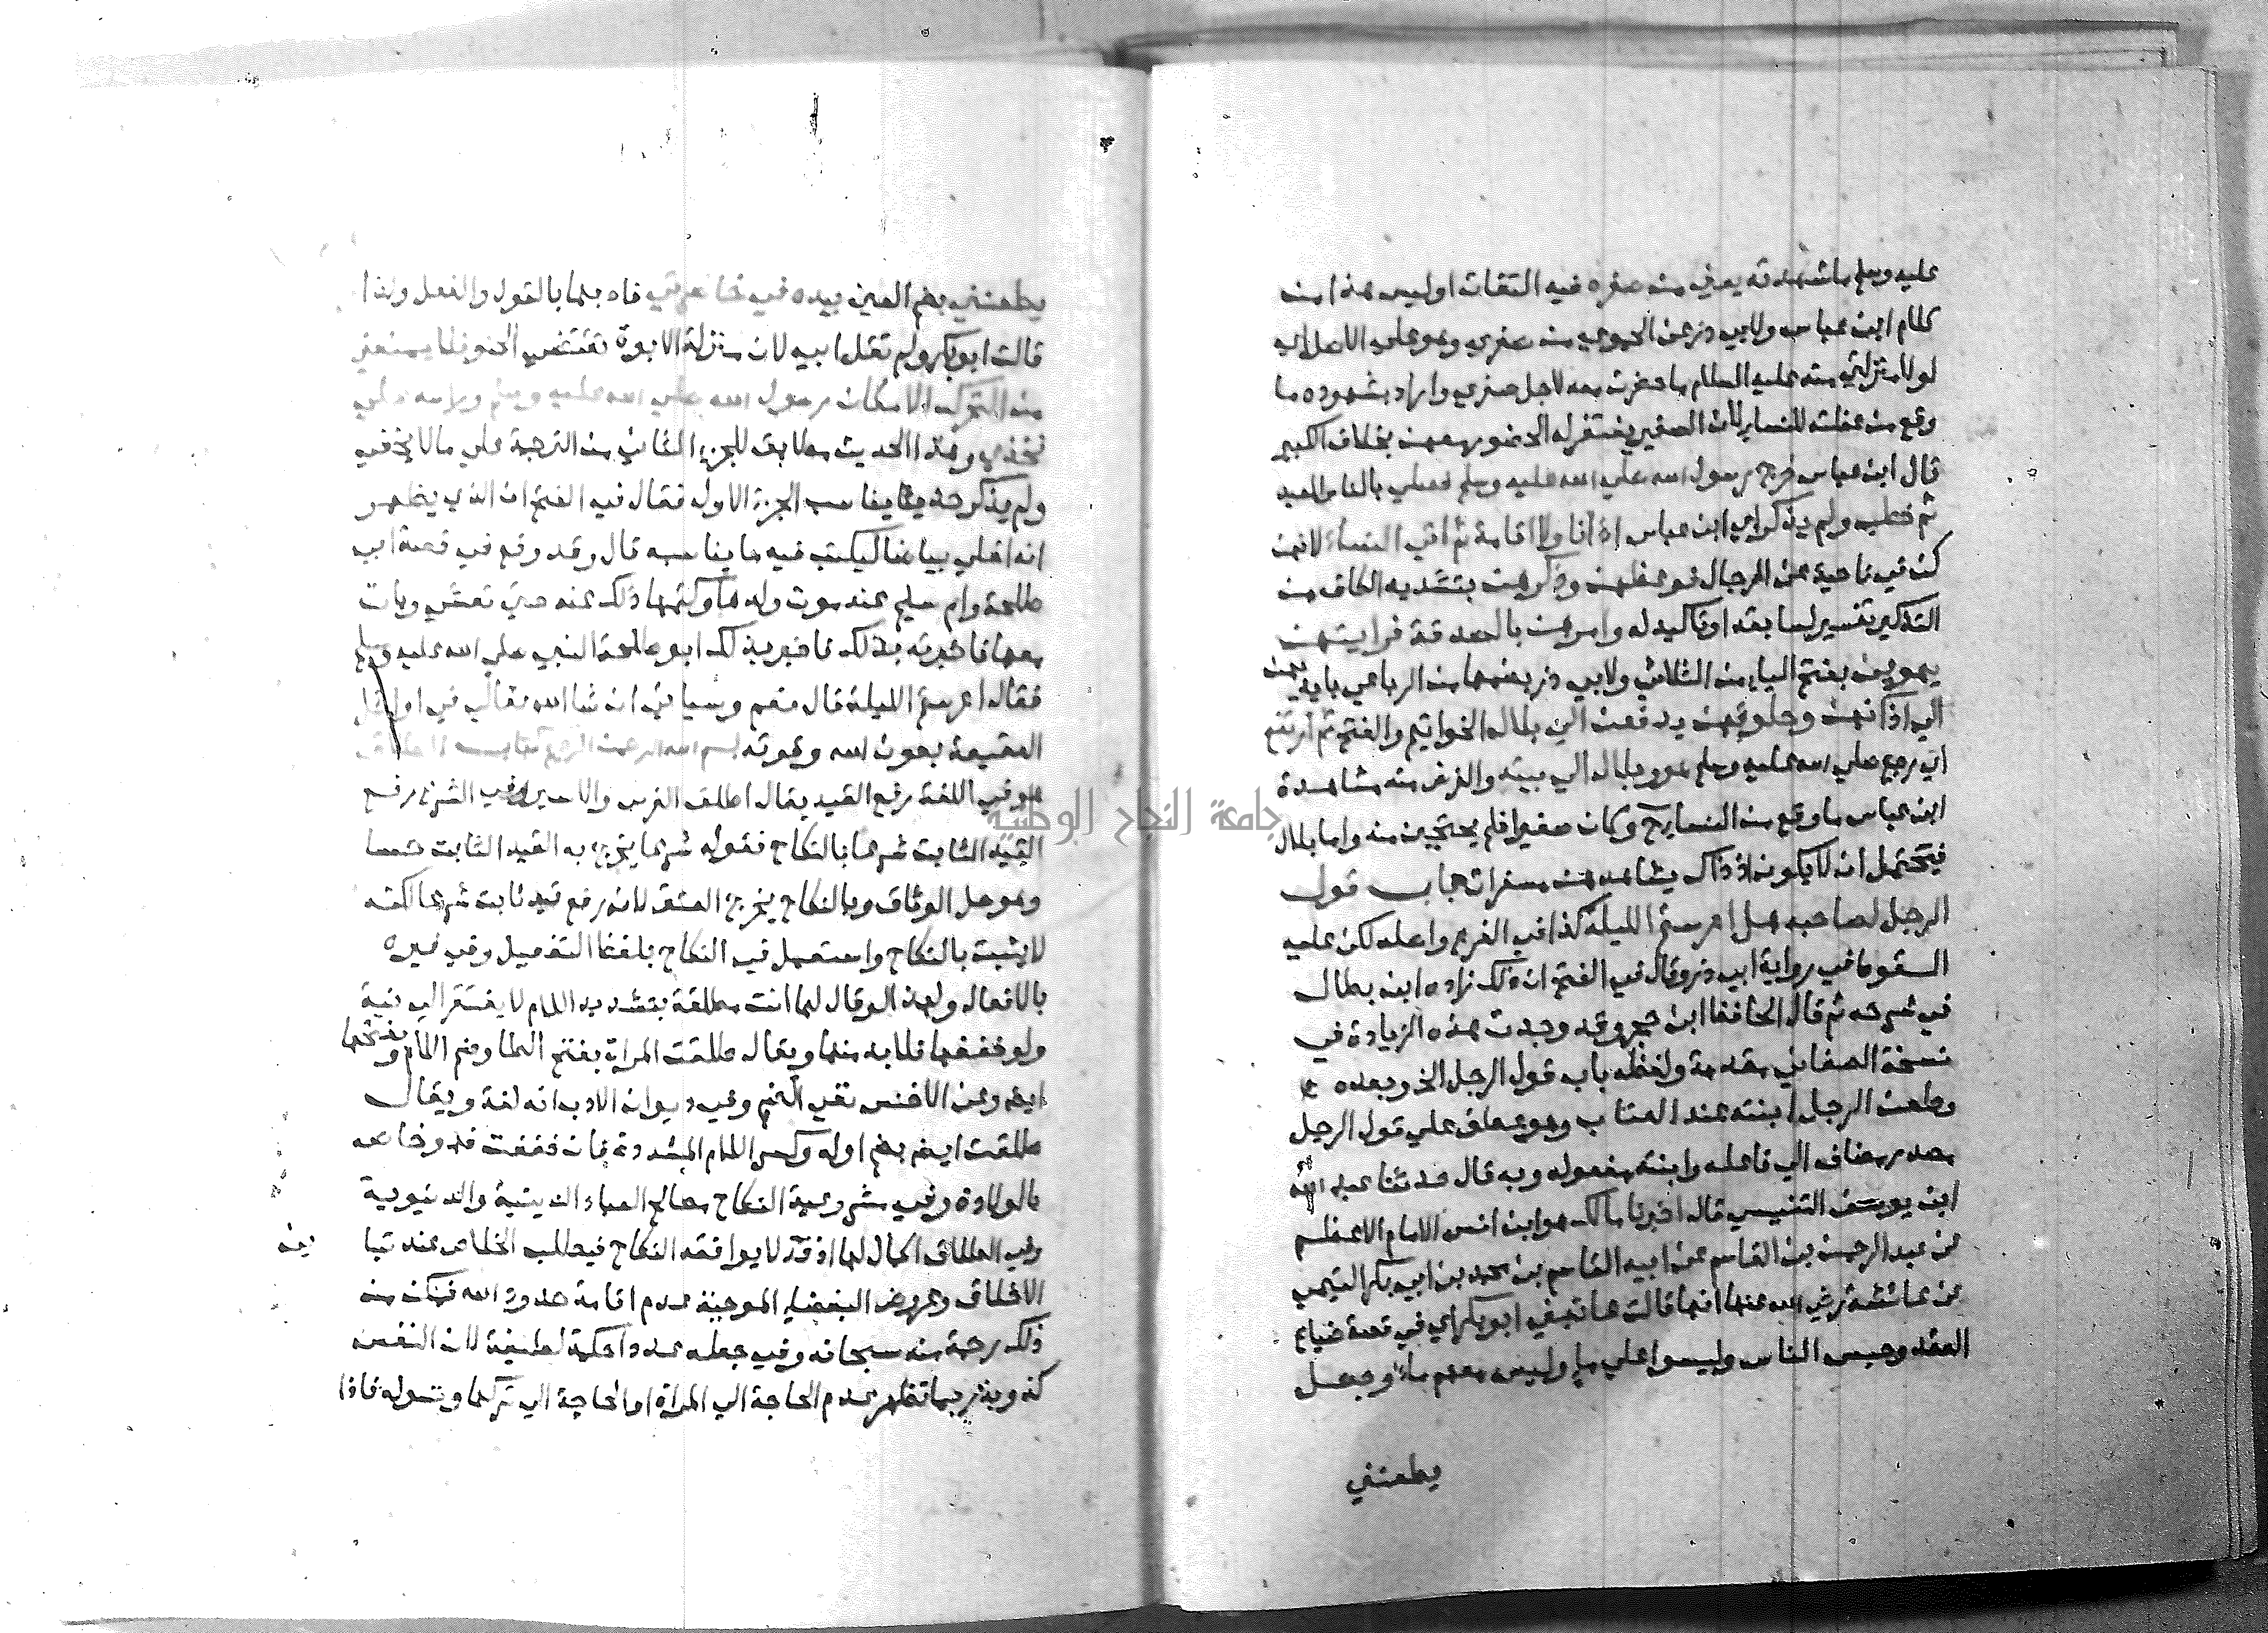 عليه وسلم ما شهدته يعني من صغره فيه التفات او ليس هذا من
كلام ابن عباس ولابي ذر عن الحموي من صغري وهو على الاصل اي
لولا منزلتي منه عليه السلام ما حضرت معه لاجل صغري واراد بشهوده ما
وقع من عظته للنساء لان الصغير يغتفر له الحضور معهن بخلاف الكبير
قال ابن عباس خرج رسول الله صلي الله عليه وسلم فصلي بالناس العيد
ثم خطب ولم يذكر اي ابن عباس اذانا ولا اقامة ثم اتي النساء لانهن
كن في ناحية عن الرجال فوعظهن وذكرهن بتشديد الكاف من
التذكير تفسير لسابقه او تاكيد له وامرهن بالصدقة فرايتهن
يهوين بفتح الياء من الثلاثي ولابي ذر بضمها من الرباعي بايديهن
الي اذانهن وحلوقهن يدفعن الي بلال الخواتيم والفتخ ثم ارتفع
اي رجع صلي الله عليه وسلم هو وبلال الي بيته والغرض منه مشاهدة
ابن عباس ما وقع من النساء ح وكان صغيرا فلم يحتجبن منه واما بلال
فيحتمل ان لا يكون اذ ذاك يشاهدهن مسفرات باب قول
الرجل لصاحبه هل اعرستم الليلة كذا في الفرع واصله لكن عليه
السقوط في رواية ابي ذر وقال في الفتح ان ذلك زاده ابن بطال
في شرحه ثم قال الحافظ ابن حجر وقد وجدت هذه الزيادة في
نسخة الصغاني مقدمة ولفظه باب قول الرجل الخ وبعده
وطعن الرجل ابنته عند العتاب وهو عطف علي قول الرجل
مصدر مضاف الي فاعله وابنته مفعوله وبه قال حدثنا عبد الله
ابن يوسف التنيسي قال اخبرنا مالك هو ابن انس الامام الاعظم
عن عبد الرحمن بن القاسم عن ابيه القاسم بن محمد بن ابي بكر التيمي
عن عائشة رضي الله عنها انها قالت عاتبني ابو بكر اي في قصة ضياع
العقد وحبس الناس وليسوا علي ماء وليس معهم ماء وجعل
يطعنني
يطعنني بضم العين بيده في خاصرتي فاد بها بالقول والفعل ولذا
قالت ابو بكر ولم تقل ابي لان منزلة الابوة تقتضي الحنو فلا يمنعني
من التحرك الا مكان رسول الله صلي الله عليه وسلم وراسه علي
فخذي وهذا الحديث مطابق للجزء الثاني من الترجمة علي ما لا يخفي
ولم يذكر حديثا يناسب الجزء الاول فقال في الفتح ان الذي يظهر
انه اخلي بياضا ليكتب فيه ما يناسبه قال وقد وقع في قصة ابي
طلحة وام سليم عند موت ولدها وكتمها ذلك عنه حتي تعشي وبات
معها فاخبرته بذلك فاخبر بذلك ابو طلحة النبي صلي الله عليه وسلم
فقال اعرستم الليلة قال نعم وسياتي ان شا الله تعالي في اوائل
العقيقة بعون الله وقوته بسم الله الرحمن الرحيم كتاب الطلاق
هو في اللغة رفع القيد يقال اطلق الفرس والاسير وفي الشرع رفع
القيد الثابت شرعا بالنكاح فقوله شرعا يخرج به القيد الثابت حسا
وهو حل الوثاق وبالنكاح يخرج العتق لانه رفع قيد ثابت شرعا لكنه
لا يثبت بالنكاح واستعمل في النكاح بلفظ التفعيل وفي غيره
بالافعال ولهذا لو قال لها انت مطلقة بتشديد اللام لا يفتقر الي نية
ولو خففها فلا بد منها ويقال طلقت المراة بفتح الطا وضم اللام وبفتحها
ايضا وعن الاخفش نفي الضم وفي ديوان الادب انه لغة ويقال
طلقت ايضا بضم اوله وكسر اللام المشددة فان خففت فهو خاص
بالولادة وفي مشروعية النكاح مصالح العباد الدينية والدنيوية
وفي الطلاق اكمال لها اذ قد لا يوافقه النكاح فيطلب الخلاص عند تباين
الاخلاق وعروض البغضاء الموجبة عدم اقامة حدود الله فمكن من
ذلك رحمة منه سبحانه وفي جعله عددا حكمة لطيفة لان النفس
كذوبة ربما تظهر عدم الحاجة الي المراة او الحاجة الي تركها وتسوله فاذا
جامعة النجاح الوطنية